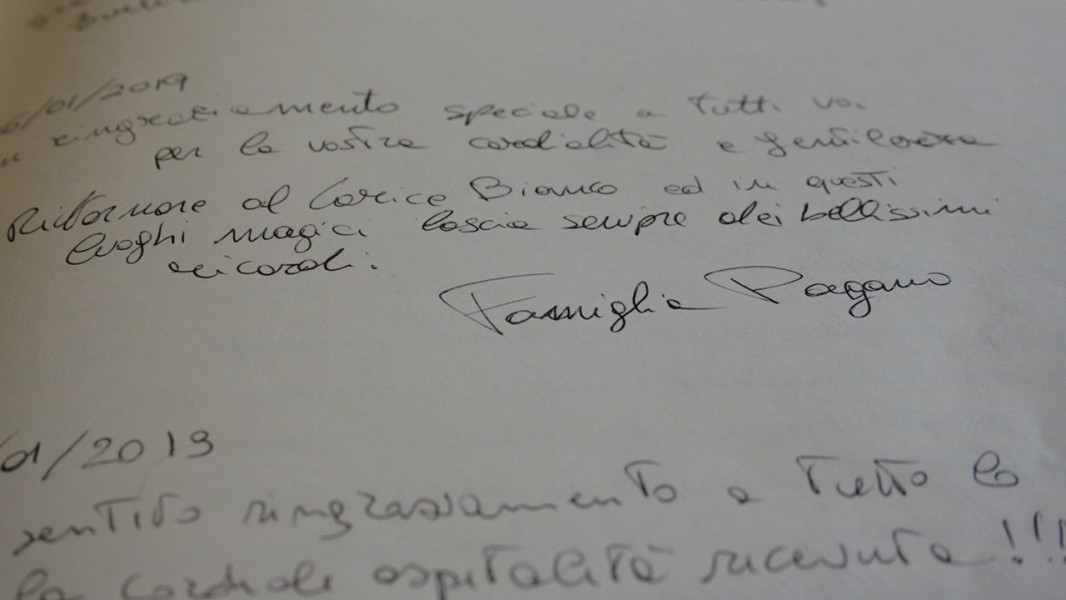 6/01/2019
ringraziamento speciale a tutti voi
per la vostra cordialità e gentilezza
Ritornare al Corice Bianco ed in questi
luoghi magici lascia sempre dei bellissimi
ricordi.
Famiglia Pagano
01/2019
sentito ringraziamento a tutto lo
la cordiale ospitalità ricevuta!!!